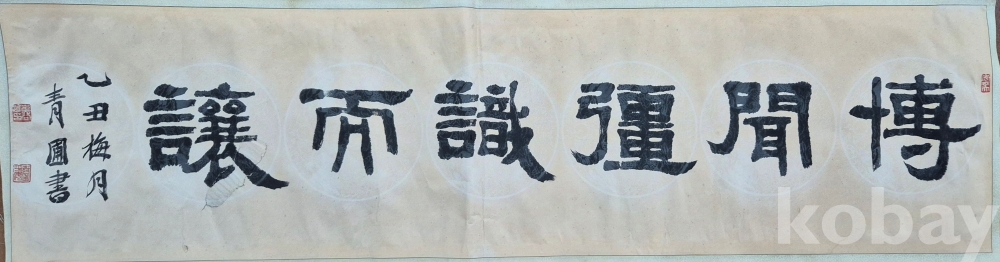 博聞彊識而讓
乙丑梅月
青圃書
kobay